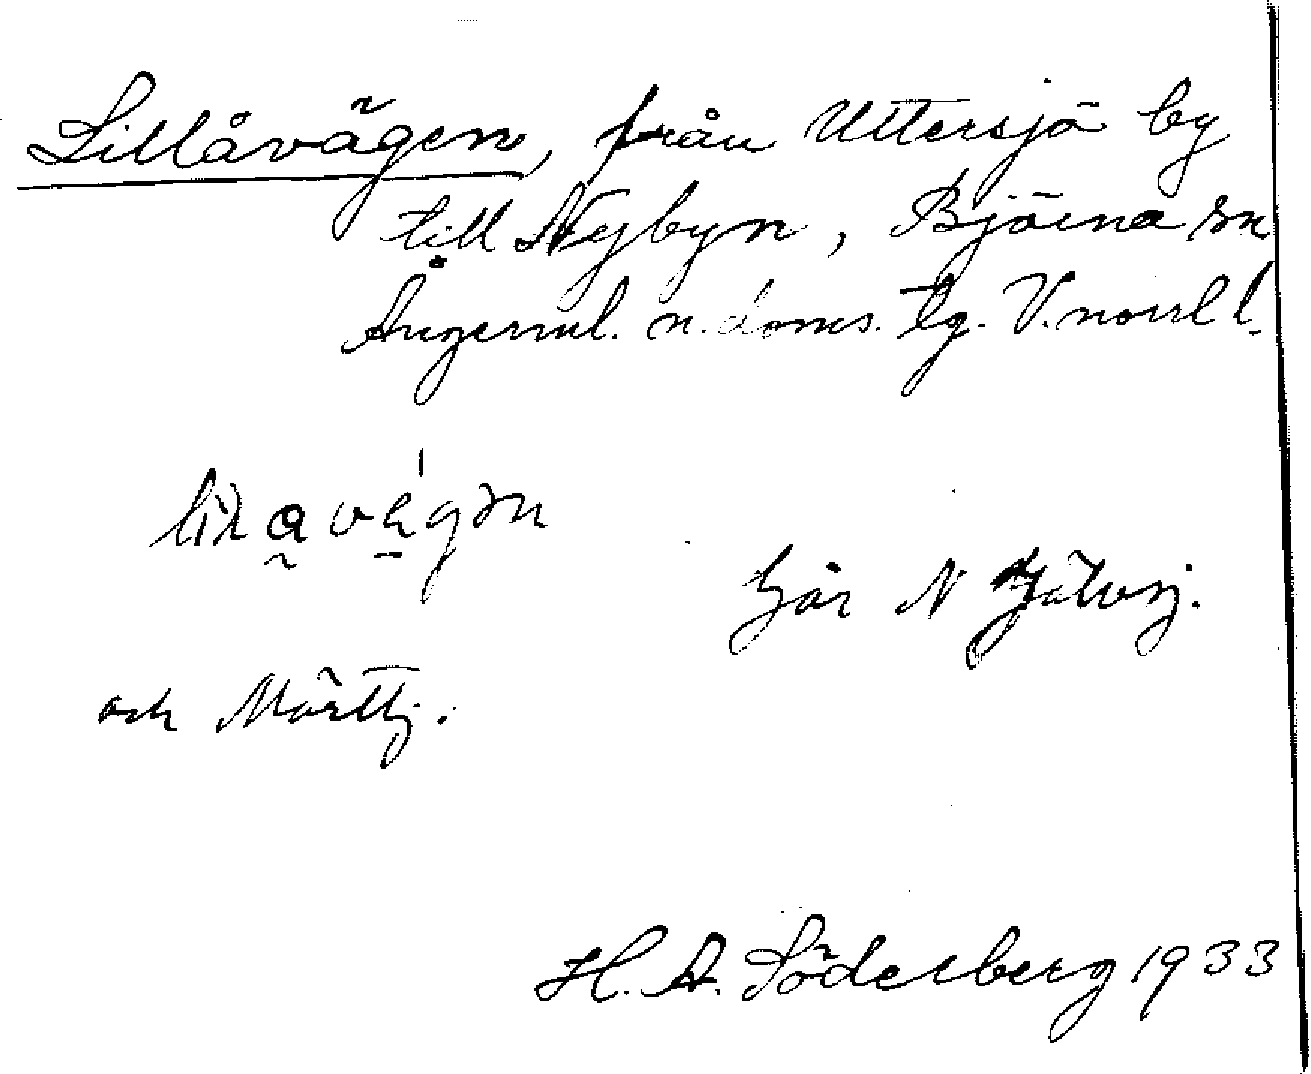 Lillåvägen, från Uttersjö by
till Nybyn, Björna sn
Ångerml. n. doms. tg. V. norrl l.
går N
och Mörttj.
H. A. Söderberg 1933